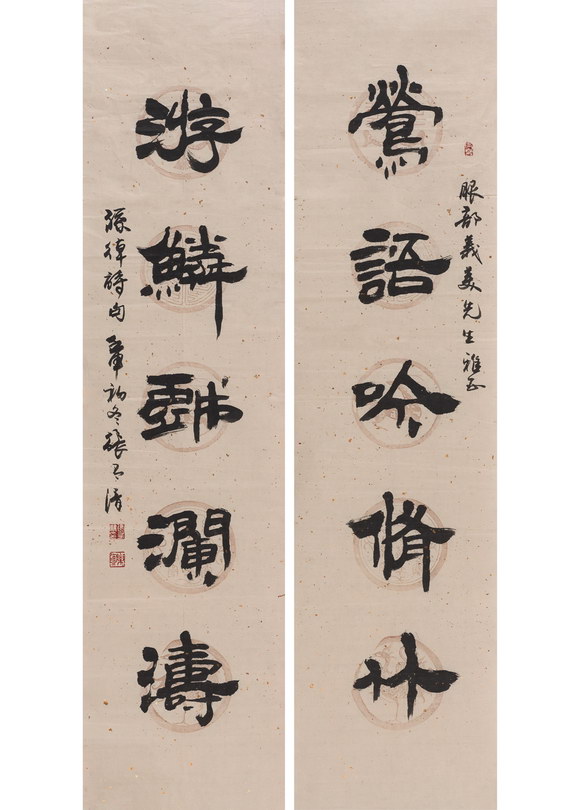 鶯語吟脩竹
服部義美先生雅正
游鱗戲瀾濤
孫綽詩句 初冬張有清